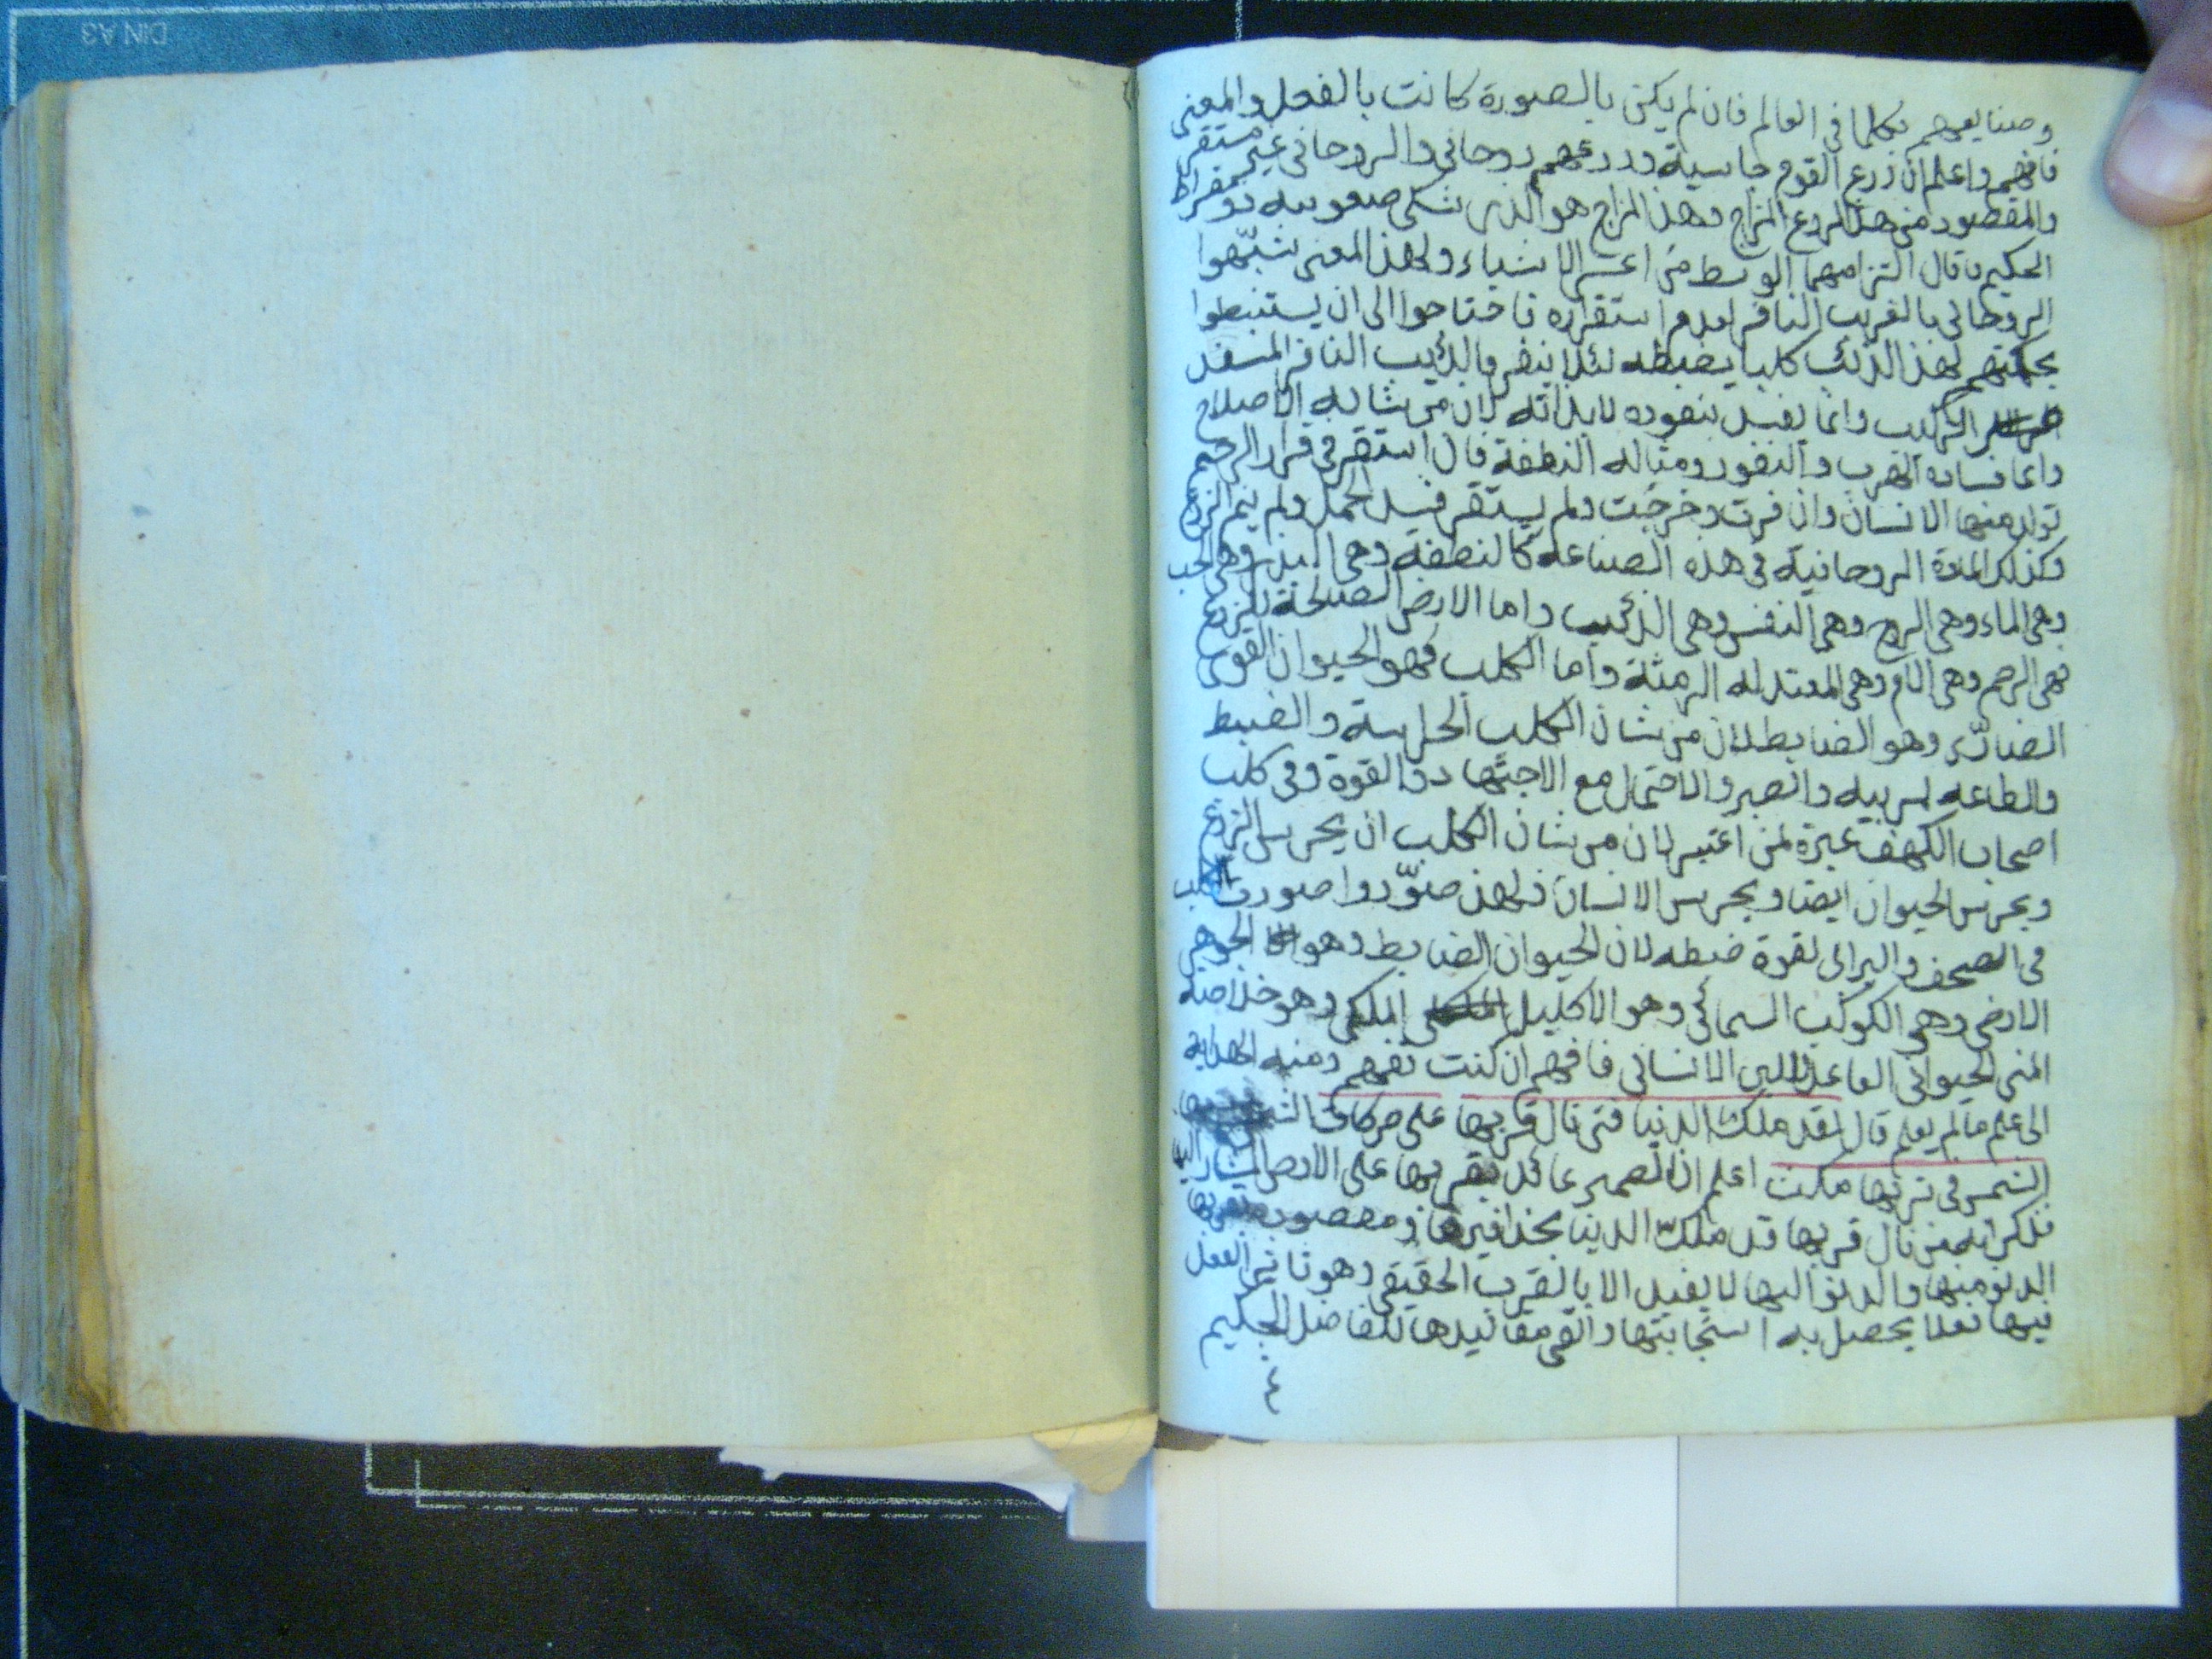 DIN A3
وصنايعهم بكلما في العالم فان لم يكن بالصورة كانت بالفعل والمعنى
فافهم واعلم ان زرع القوم جاسية وزرعهم روحاني والروحاني غير مستقر
والمقصود من هذا الزرع المزاج وهذا المزاج هو الذي شكى صعوبته دومقراط
الحكيم فقال التزامهما الوسط من اعسر الاشياء ولهذا المعنى شبهوا
الروحاني بالغريب النافر لعدم استقراره فاحتاجوا الى ان يستنبطوا
بحكمتهم لهذا الذئب كلبا يضبطه لئلا ينفر فالذئب النافر المفسد
التركيب وانما يفسد بنفوره لا بذاته لان من شانه الاصلاح
وانما فساده الهرب والنفور ومثاله النطفة فان استقر في قرار الرحم
تولد منها الانسان وان فرت وخرجت ولم يستقر فسد الحمل ولم يتم الزرع
وكذلك المادة الروحانية في هذه الصناعة كالنطفة وهي البذر وهي الحب
وهي الماء وهي الروح وهي النفس وهي الذئب واما الارض الصالحة للزرع
فهي الرحم وهي الام وهي المعتدله الدمثة واما الكلب فهو الحيوان القوى
وهو الضابط لان من شان الكلب الحراسة والضبط
والطاعه لمربيه والصبر والاحتمال مع الاجتهاد والقوة وفي كلب
اصحاب الكهف عبرة لمن اعتبر لان من شان الكلب ان يحرس الزرع
ويحرس الحيوان ايضا ويحرس الانسان فلهذا صوّروا صورت الكلب
في الصحف والبرابي لقوة ضبطه لان الحيوان الضابط وهو الجوهر
الارضي وهو الكوكب السمائي وهو الاكليل الملكي وهو خلاصة
المني الحيواني الفاعل واللبن الانساني فافهم ان كنت تفهم ومنه الهداية
الى علم مالم يعلم قال لقد ملك الدنيا فتى نال قربها على حركات
الشمس في تربها مكث اعلم ان الضمير عائد بقربها على الارض المشار اليها
فذكر انه من نال قربها قد ملك الدنيا بحذافيرها ومقصوده بقربها
الدنو منها والدنو اليها لا يفيد الا بالقرب الحقيقي وهو تاثير الفعل
فيها فعلا يحصل به استجابتها والقى مقاليدها للفاضل الحكيم
٤